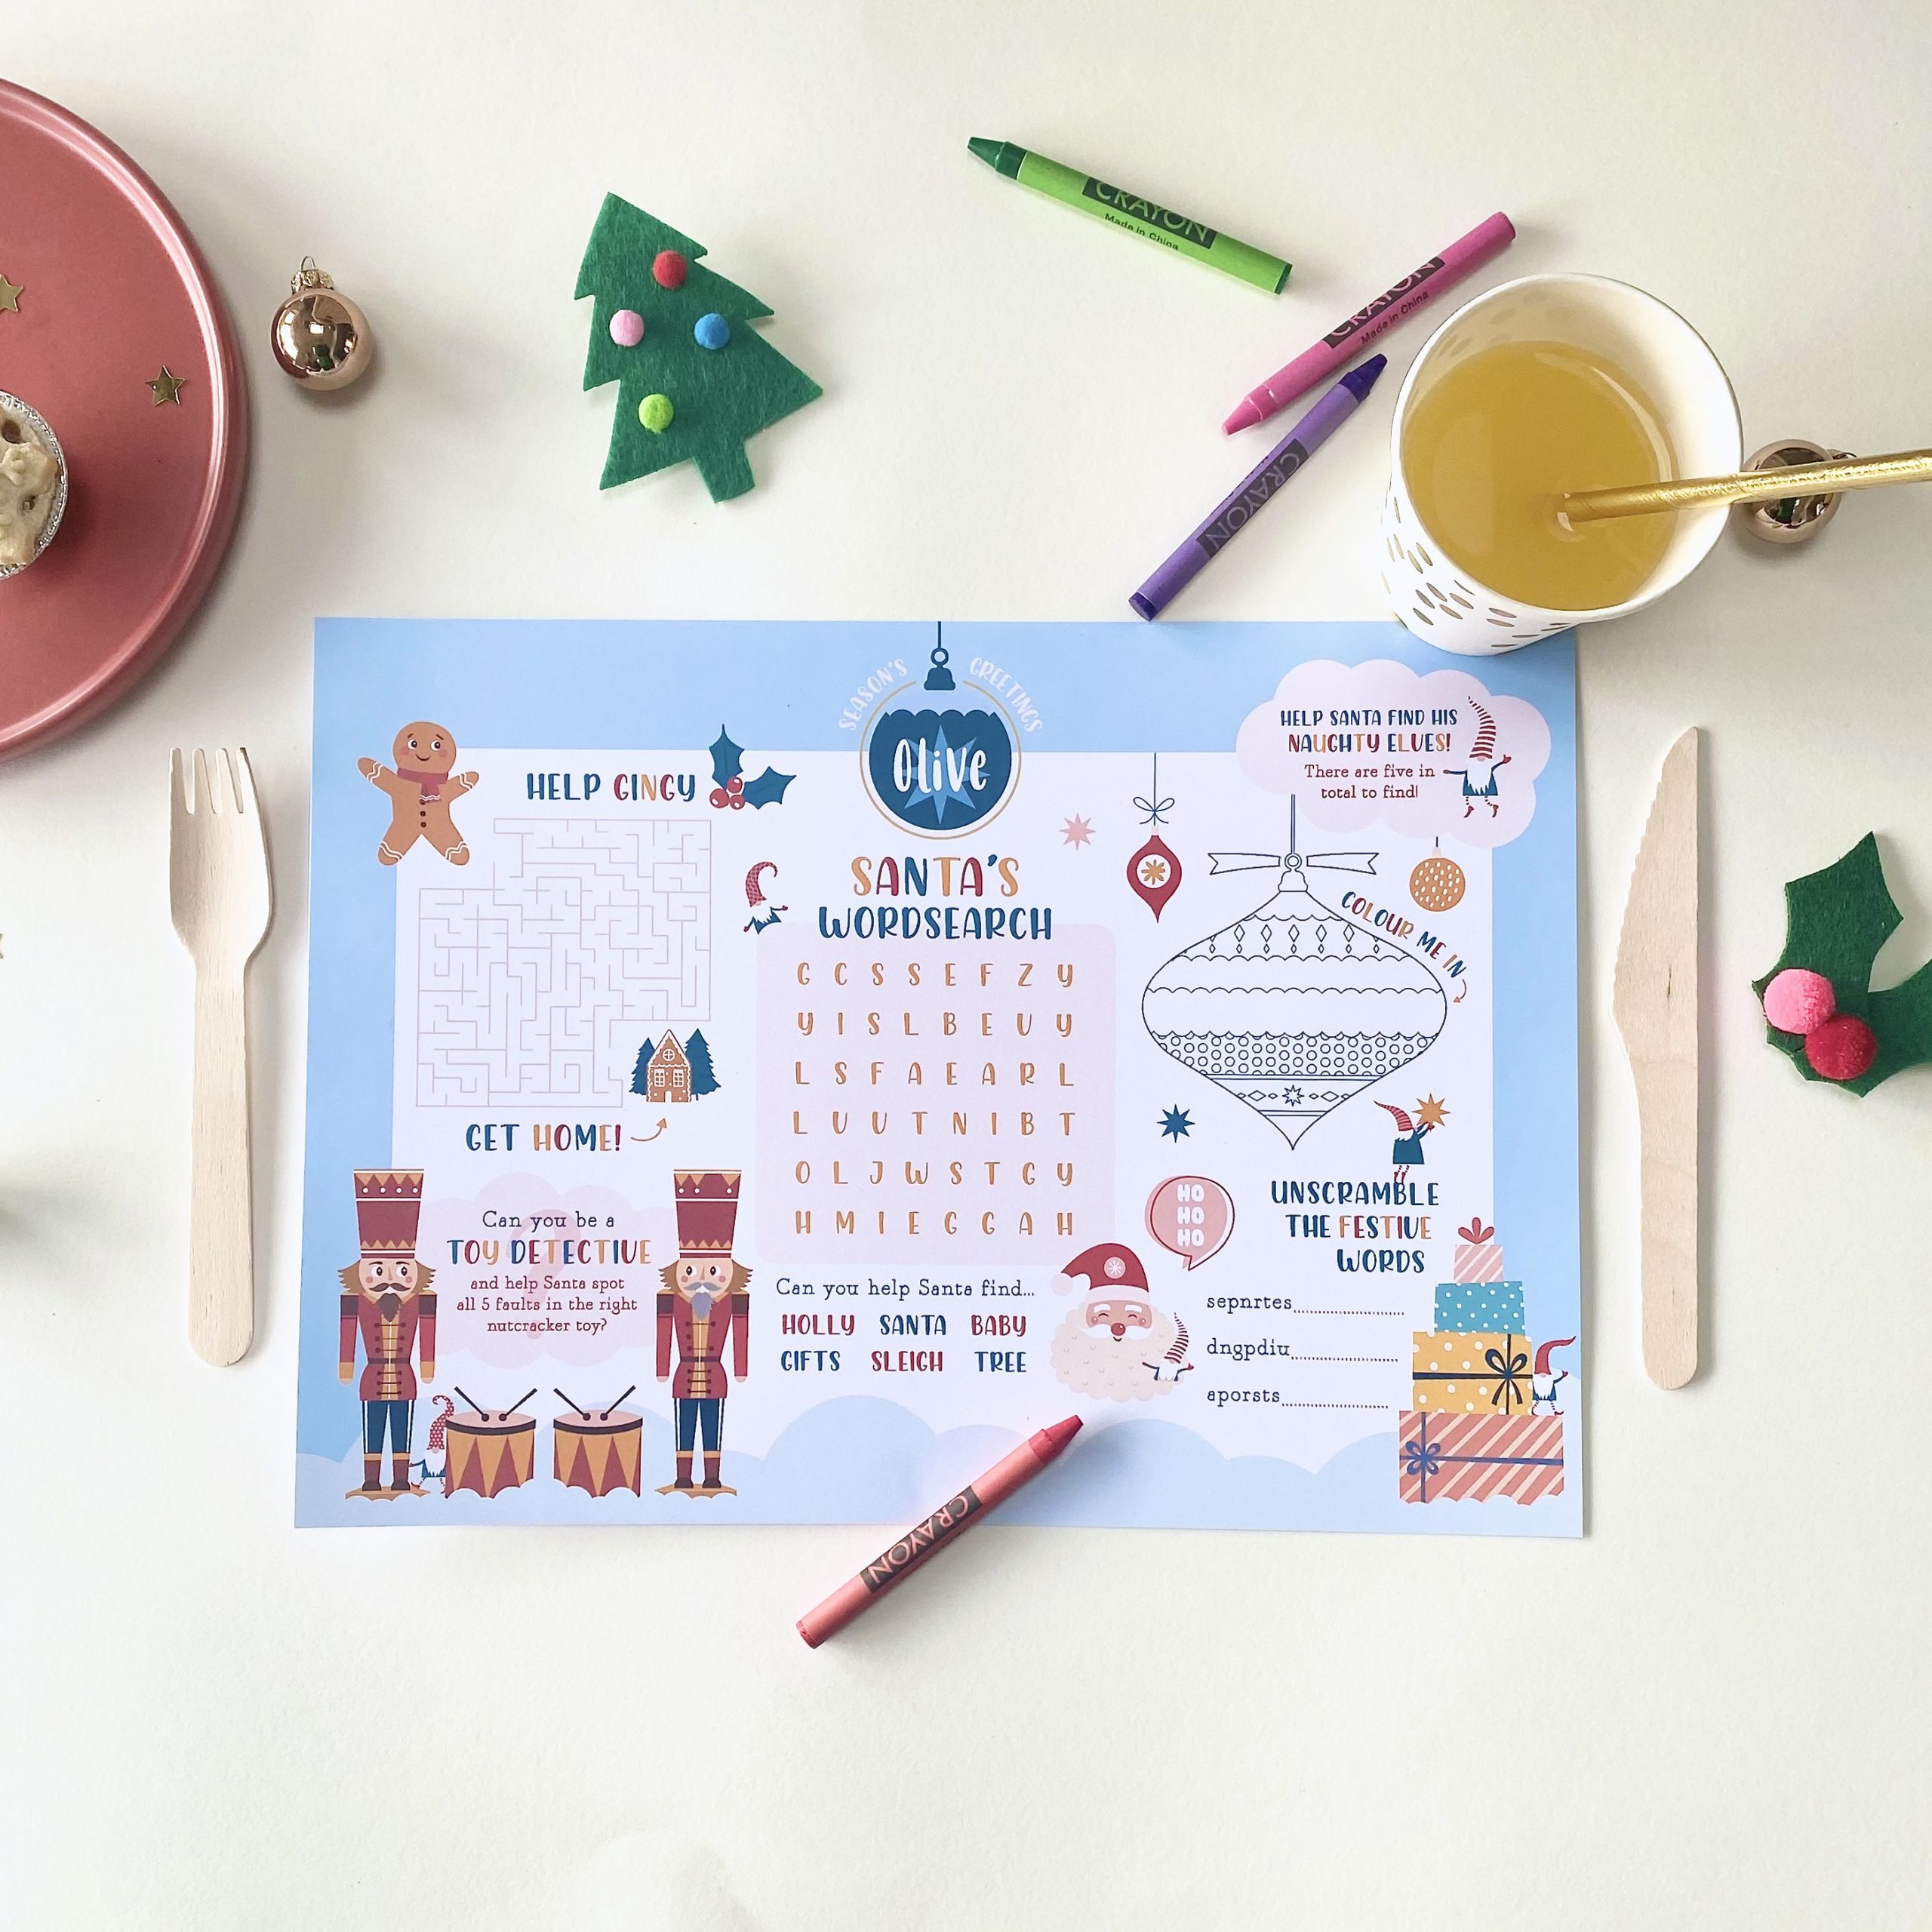 CRAYON
Made in China
CRAYON
Made in China
CRAYON
SEASON'S GREETINGS
Olive
HELP SANTA FIND HIS
NAUGHTY ELVES!
There are five in
total to find!
HELP GINGY
GET HOME!
SANTA'S
WORDSEARCH
G C S S E F Z Y
Y I S L B E U Y
L S F A E A R L
L U U T N I B T
O L J W S T G Y
H M I E G G A H
Can you help Santa find...
HOLLY SANTA BABY
GIFTS SLEIGH TREE
COLOUR ME IN
Can you be a
TOY DETECTIVE
and help Santa spot
all 5 faults in the right
nutcracker toy?
HO
HO
HO
UNSCRAMBLE
THE FESTIVE
WORDS
sepnrtes
dngpdiu
aporsts
CRAYON